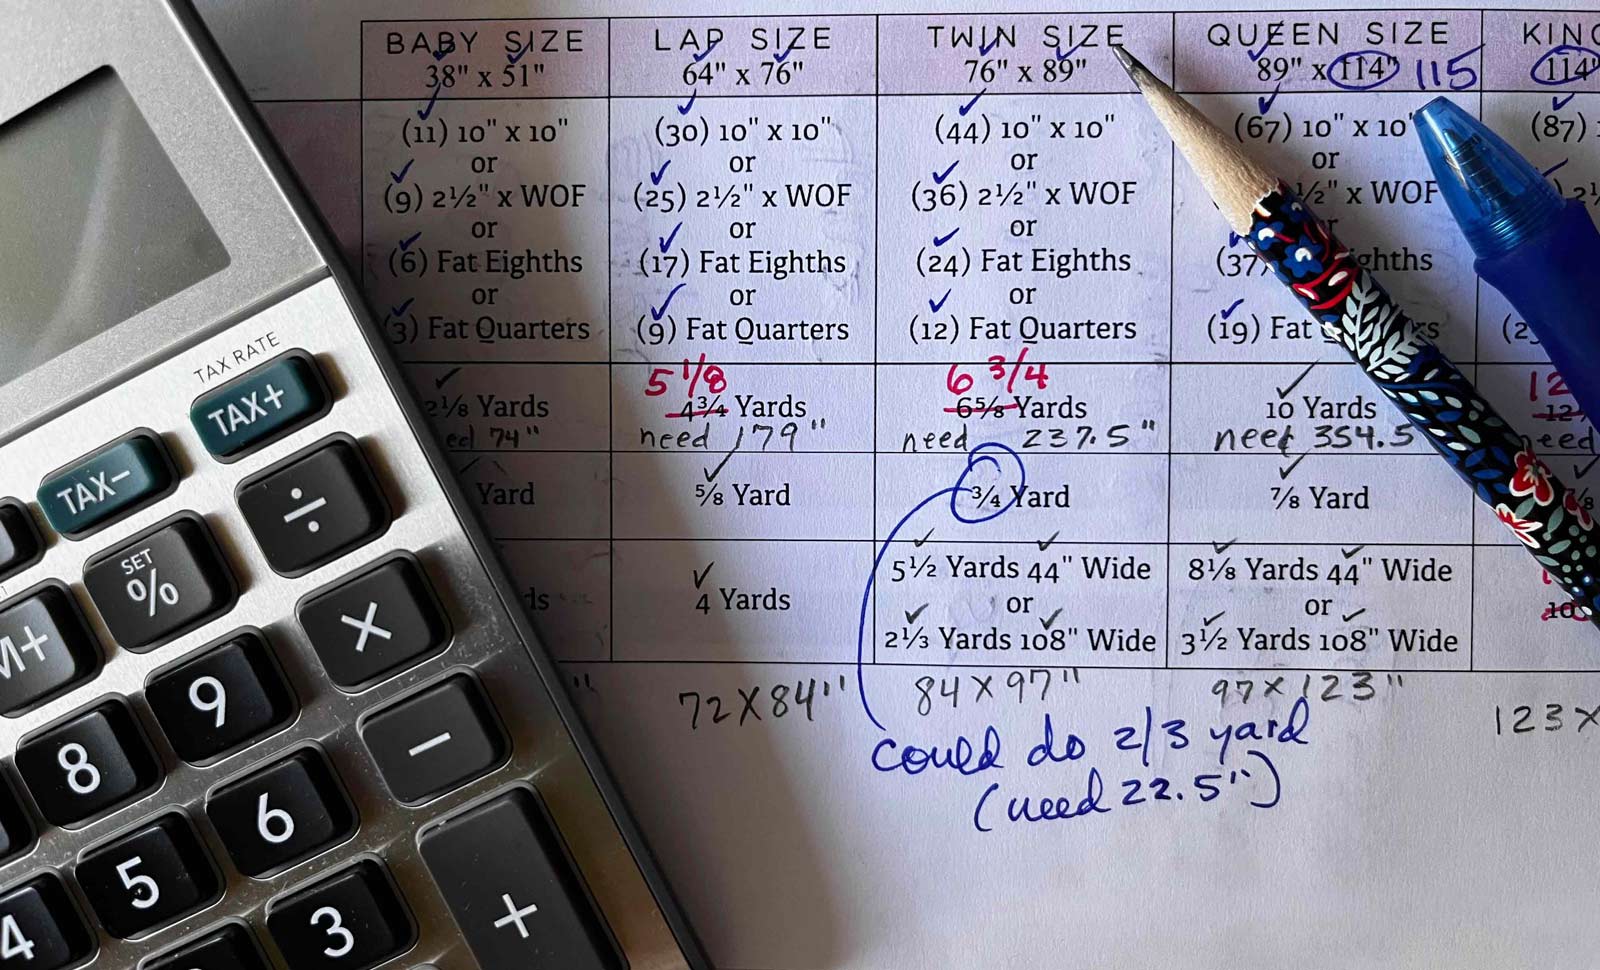 BABY SIZE
38" x 51"
(11) 10" x 10"
or
(9) 2½" x WOF
or
(6) Fat Eighths
or
(3) Fat Quarters
2⅛ Yards
74"
Yard
LAP SIZE
64" x 76"
(30) 10" x 10"
or
(25) 2½" x WOF
or
(17) Fat Eighths
or
(9) Fat Quarters
5 1/8
4¾ Yards
need 179"
⅝ Yard
4 Yards
72 X 84"
TWIN SIZE
76" x 89"
(44) 10" x 10"
or
(36) 2½" x WOF
or
(24) Fat Eighths
or
(12) Fat Quarters
6 3/4
6⅝ Yards
need 237.5"
¾ Yard
5½ Yards 44" Wide
or
2⅓ Yards 108" Wide
84 X 97"
could do 2/3 yard
(need 22.5")
QUEEN SIZE
89" x 114" 115
(67) 10" x 10"
or
½" x WOF
(37)
(19) Fat
10 Yards
need 354.5
⅞ Yard
8⅛ Yards 44" Wide
or
3½ Yards 108" Wide
97 X 123"
114"
(87)
12
123 X
TAX RATE
TAX+
TAX-
÷
SET
%
×
M+
9
8
−
6
5
+
4
3